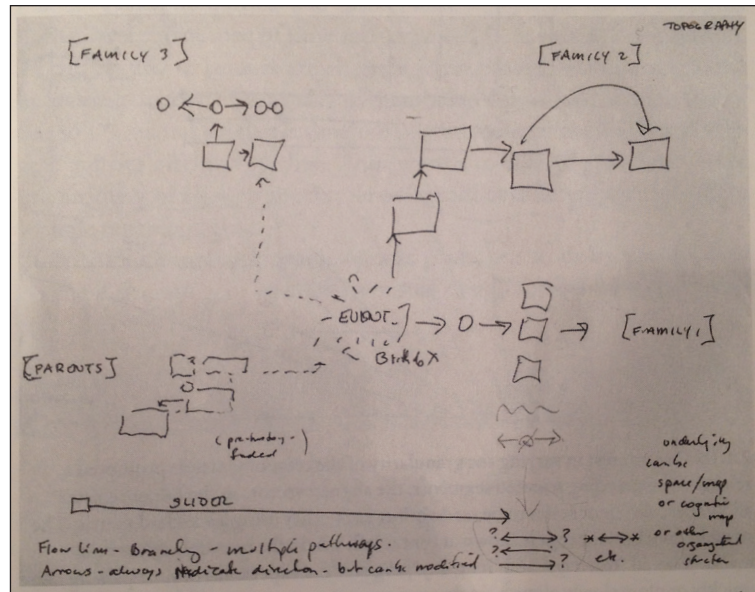 TOPOGRAPHY
[FAMILY 3]
[FAMILY 2]
EVENT
[FAMILY 1]
Birth of X
[PARENTS]
(pre-history -
faded)
SLIDER
underlying
can be
space/map
or cognitive
map
or other
organizational
structure
? ? * *
?
? etc.
Flow lines - Branching - multiple pathways.
Arrows - always indicate direction - but can be modified